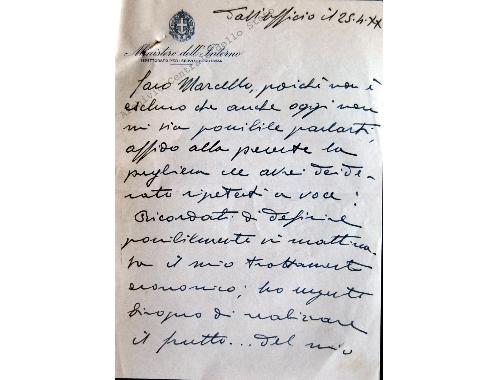 Dall'Ufficio il 25.4.XX
Ministero dell'Interno
Archivio Centrale dello Stato
Caro Marcello, poiché non è
escluso che anche oggi non
mi sia possibile parlarti,
affido alla presente la
preghiera che avrei deside
rato ripeterti a voce:
Ricordati di definire
possibilmente in mattina
ta il mio trattamento
economico; ho urgente
bisogno di realizzare
il frutto... del mio